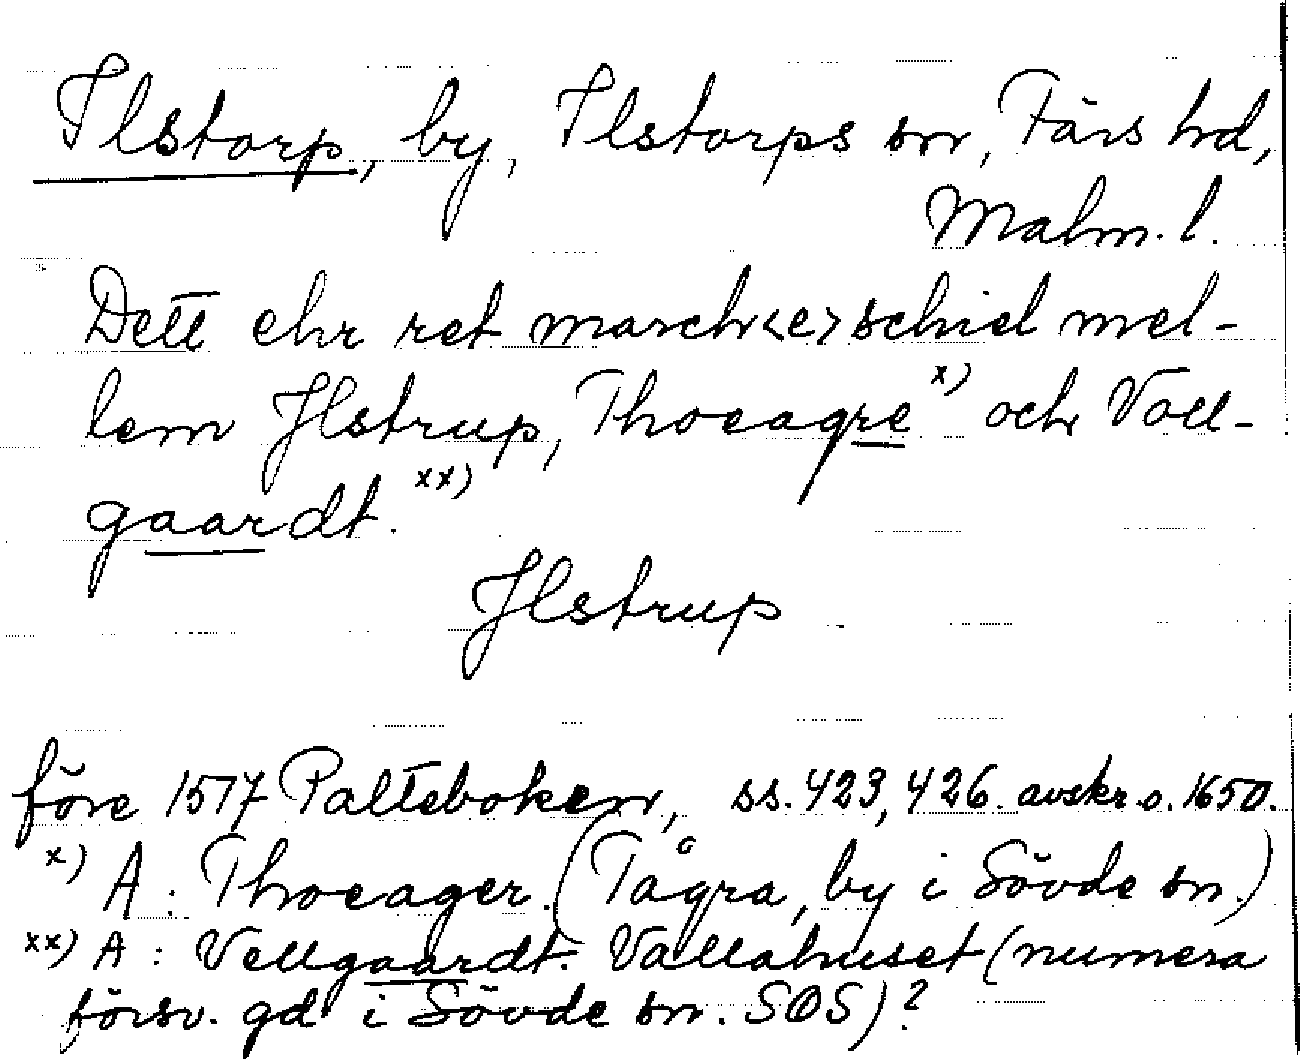 Ilstorp, by, Ilstorps sn, Färs hd,
Malm. l.
Dett ehr ret march<e>schiel mel-
lem Jlstrup, Thoeagre x) och Vall-
gaardt. xx)
Jlstrup
före 1517 Palteboken, ss. 423, 426. avskr. o. 1650.
x) A: Thoeager. (Tågra, by i Sövde sn.)
xx) A: Vellgaardt. Vallahuset (numera
försv. gd i Sövde sn. SOS)?